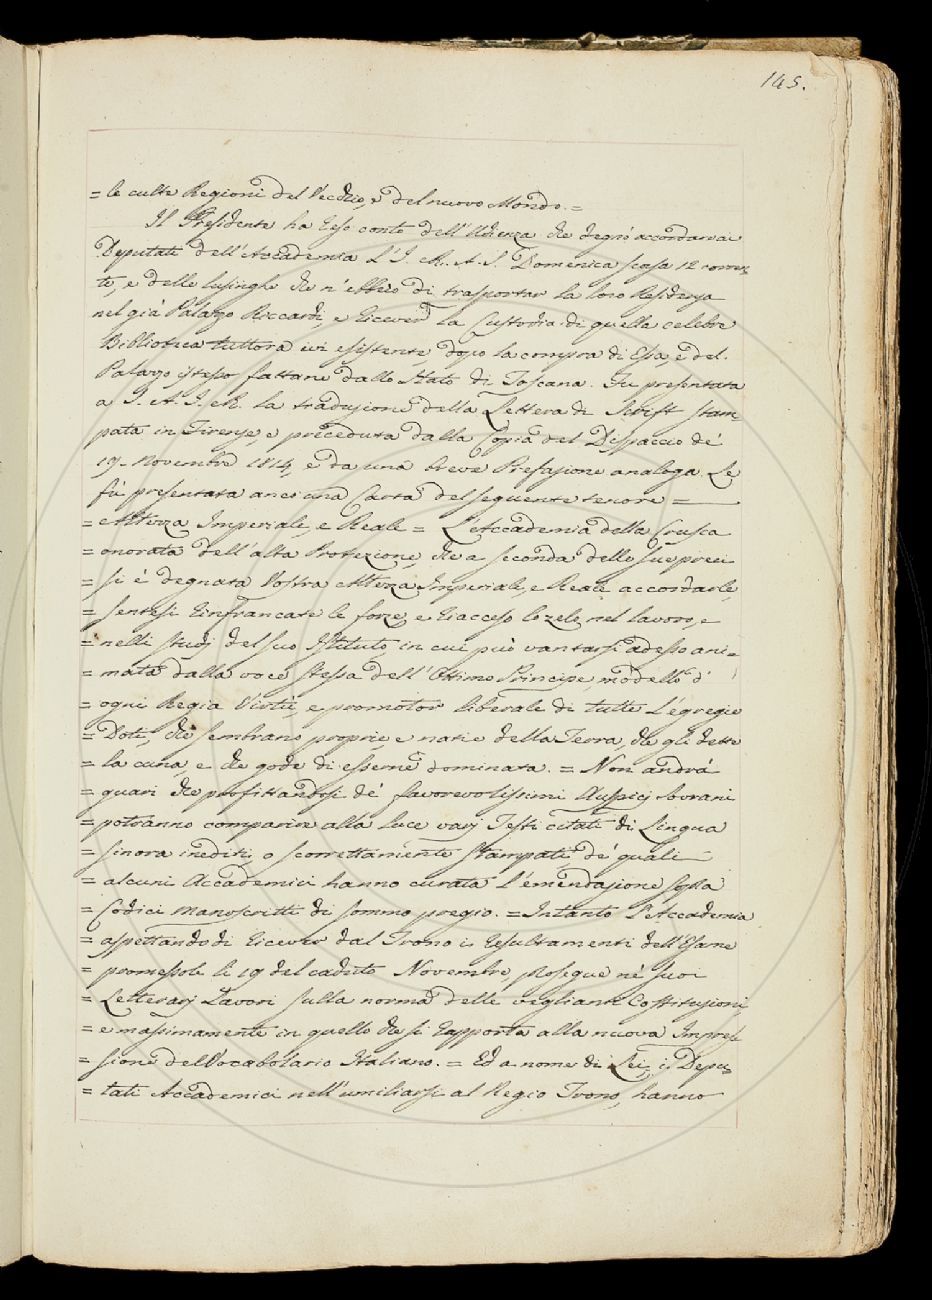 145.
= le culte Regioni del Vecchio, e del nuovo Mondo. =
Il Presidente ha reso conto dell'Udienza che degnò accordare a
Deputati dell'Accademia L'I. e R. A. S. Domenica scorsa 12 corren-
te, e delle lusinghe che n'ebbero di trasportar la loro Residenza
nel già Palazzo Riccardi, e ricever la Custodia di quella celebre
Biblioteca tuttora ivi esistente, dopo la compra di Essa, e del
Palazzo istesso fattane dallo Stato di Toscana. Fu presentata
a S. A. I. e R. la traduzione della Lettera di Swift stam-
pata in Firenze, e preceduta dalla Copia del Dispaccio de'
19. Novembre 1814, e da una breve Prefazione analoga. Le
fù presentata anco una Carta del seguente tenore =
= Altezza Imperiale, e Reale = L'Accademia della Crusca
= onorata dell'alta Protezione, che a seconda delle sue preci
= si è degnata Vostra Altezza Imperiale, e Reale accordarle,
= sentesi rinfrancate le forze, e riacceso lo zelo nel lavoro, e
= nelli studj del suo Istituto, in cui può vantarsi adesso ani-
= mata dalla voce stessa dell'Ottimo Principe, modello d'
= ogni Regia Virtù, e promotor liberale di tutte L'egregie
= Doti, che sembrano proprie, e natie della Terra, che gli dette
= la cuna, e che gode di esserne dominata. = Non andrà
= guari che profittandosi de' favorevolissimi Auspicj Sovrani
= potranno comparire alla luce varj Testi citati di Lingua
= sinora inediti, o scorrettamente stampati de' quali
= alcuni Accademici hanno curata l'emendazione sopra
= Codici manoscritti di sommo pregio. = Intanto L'Accademia
= aspettando di ricever dal Trono i resultamenti dell'Esame
= promessole li 19 del caduto Novembre, prosegue ne' suoi
= Letterarj Lavori sulla norma delle veglianti Costituzioni,
= e massimamente in quello che si rapporta alla nuova Impres-
= sione del Vocabolario Italiano. = Ed a nome di Lei, i Depu-
= tati Accademici nell'umiliarsi al Regio Trono, hanno